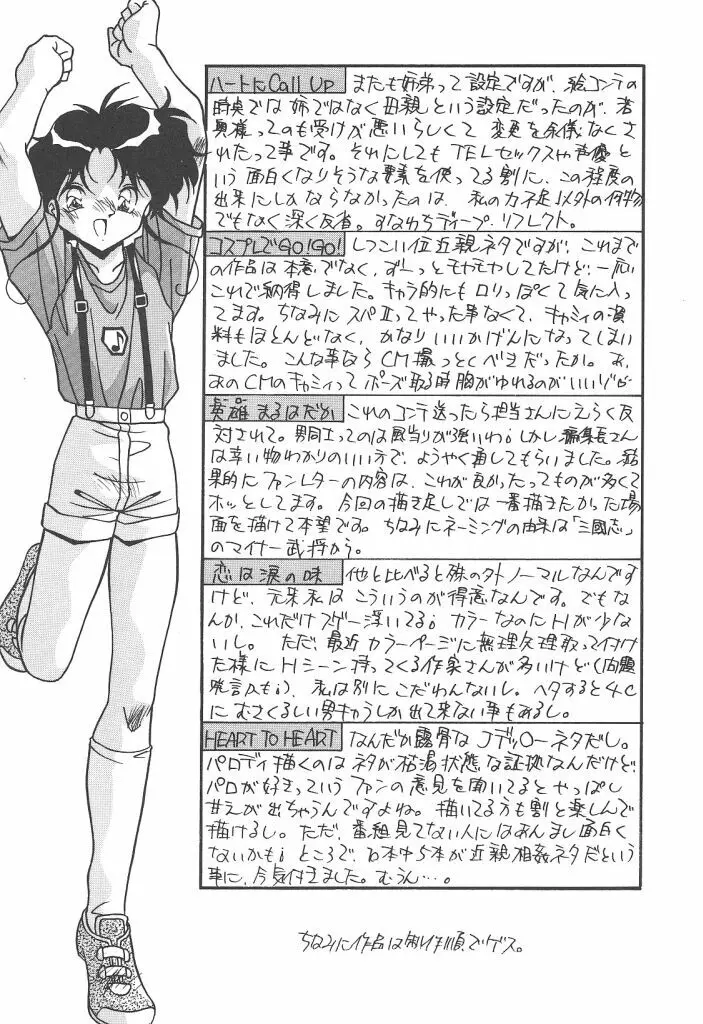 ハートにCall Up またも姉弟って設定ですが、絵コンテの
時点では姉ではなく母親という設定だったのが、若
奥様ってのも受けが悪いらしくて変更を余儀なくさ
れたって事です。それにしてもTELセックスや声優と
いう面白くなりそうな要素を使ってる割に、この程度の
出来にしかならなかったのは、私の力不足以外の何物
でもなく深く反省。すなわちディープ・リフレクト。
コスプレでGO!GO! しつこい位近親ネタですが、これまで
の作品は本意でなく、ずーっとモヤモヤしてたけど、一応
これで納得しました。キャラ的にもロリっぽくて気に入っ
てます。ちなみにスパIIってやった事なくて、キャミィの資
料もほとんどなく、かなりいいかげんになってしまい
ました。こんな事ならCM撮っとくべきだったか。あ、
あのCMのキャミィってポーズ取る時胸がゆれるのがいい
英雄まるはだか これのコンテ送ったら担当さんにえらく反
対されて。男同士ってのは風当りが強いわ¡しかし編集長さん
は幸い物わかりのいい方で、ようやく通してもらいました。結
果的にファンレターの内容は、これが良かったってものが多くて
ホッとしてます。今回の描き足しでは一番描きたかった場
面を描けて本望です。ちなみにネーミングの由来は「三國志」
のマイナー武将から。
恋は涙の味 他と比べると殊の外ノーマルなんです
けど、元来私はこういうのが得意なんです。でもな
んか、これだけスゲー浮いてる¡カラーなのにHが少な
いし。ただ、最近カラーページに無理矢理取って付け
た様にHシーン持ってくる作家さんが多いけど(問題
発言かも¡)、私は別にこだわんないし。ヘタすると4C
にむさくるしい男キャラしか出て来ない事もあるし。
HEART TO HEART なんだか露骨なJデッ○ーネタだし。
パロディ描くのはネタが枯渇状態な証拠なんだけど、
パロが好きっていうファンの意見を聞いてるとやっぱし
甘えが出ちゃうんですよね。描いてる方も割と楽しんで
描けるし。ただ、番組見てない人にはあんまし面白く
ないかも¡ところで、10本中5本が近親相姦ネタだという
事に、今気付きました。むうん…。
ちなみに作品は制作順でゲス。